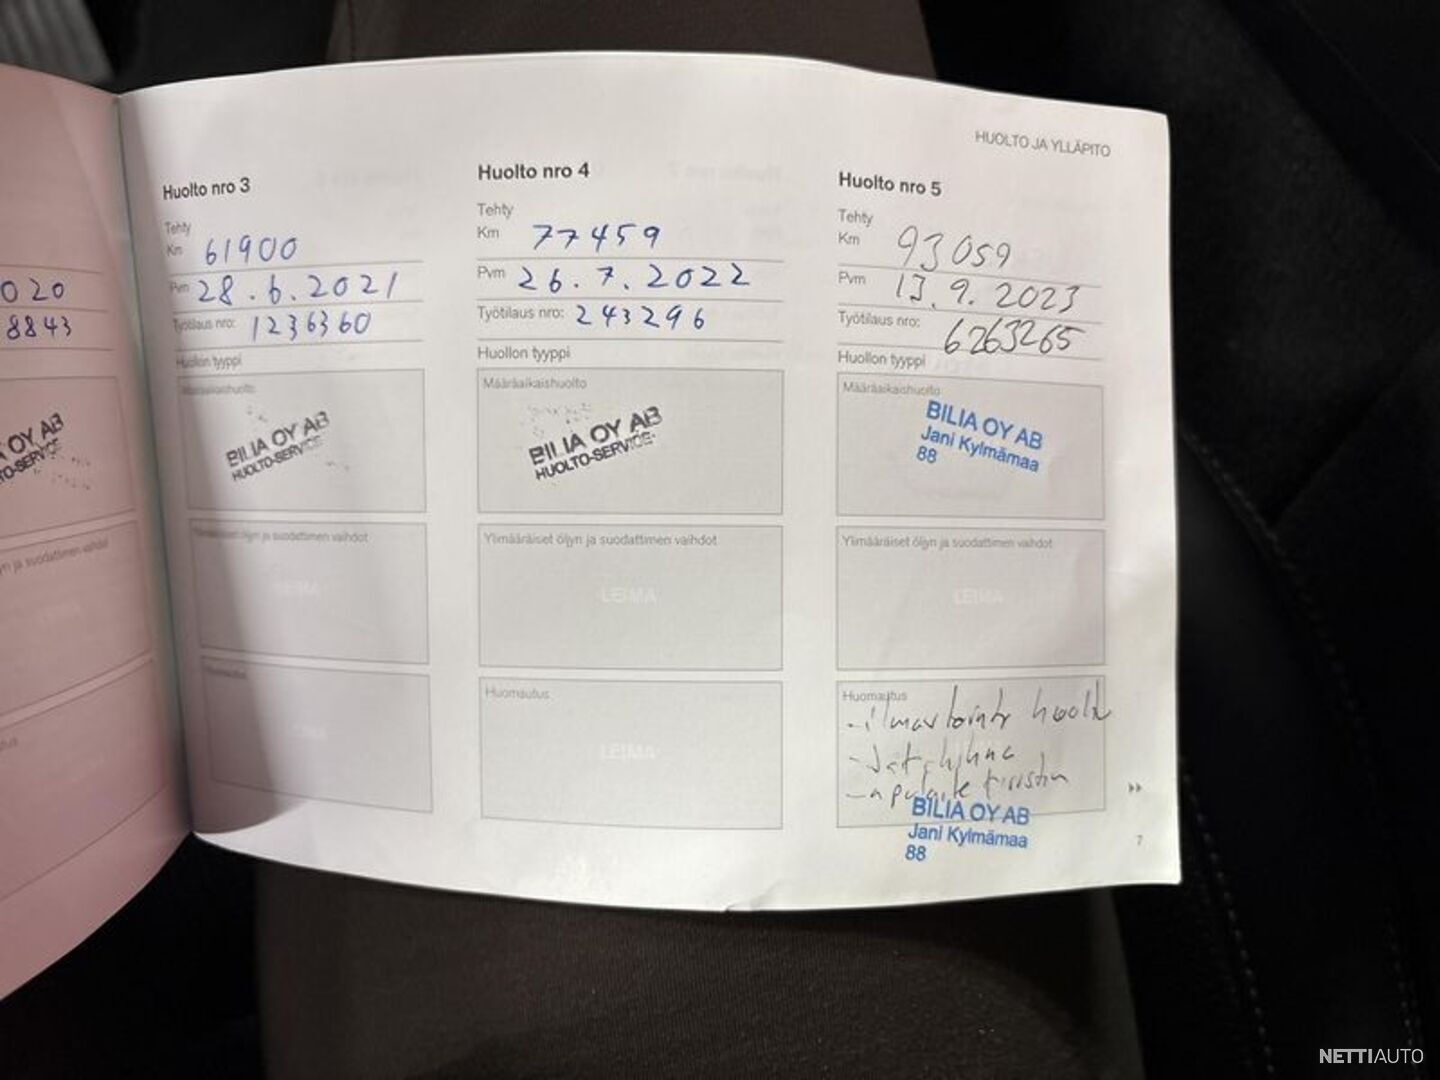 HUOLTO JA YLLÄPITO
020
8843
OY AB
TO-SERVICE
yn ja suodattimen vaihdot
Huolto nro 3
Tehty
Km 61900
Pvm 28.6.2021
Työtilaus nro: 1236360
Huollon tyyppi
Määräaikaishuolto
BILIA OY AB
HUOLTO-SERVICE
Ylimääräiset öljyn ja suodattimen vaihdot
LEIMA
Huomautus
Huolto nro 4
Tehty
Km 77459
Pvm 26.7.2022
Työtilaus nro: 243296
Huollon tyyppi
Määräaikaishuolto
BILIA OY AB
HUOLTO-SERVICE
Ylimääräiset öljyn ja suodattimen vaihdot
LEIMA
Huomautus
LEIMA
Huolto nro 5
Tehty
Km 93059
Pvm 13.9.2023
Työtilaus nro: 6263265
Huollon tyyppi
Määräaikaishuolto
BILIA OY AB
Jani Kylmämaa
88
Ylimääräiset öljyn ja suodattimen vaihdot
LEIMA
Huomautus
BILIA OY AB
Jani Kylmämaa
88
7
NETTIAUTO